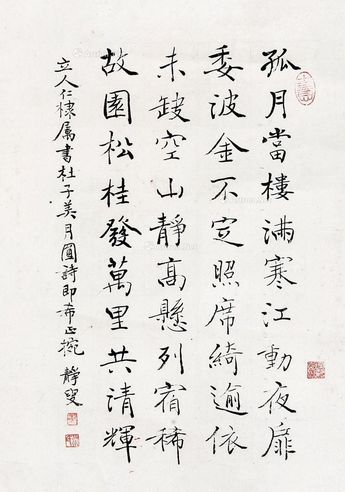 孤月當樓滿寒江動夜扉
委波金不定照席綺逾依
未缺空山靜高懸列宿稀
故園松桂發萬里共清輝
立人仁棣属書杜子美月圓詩即希正捥 靜叟